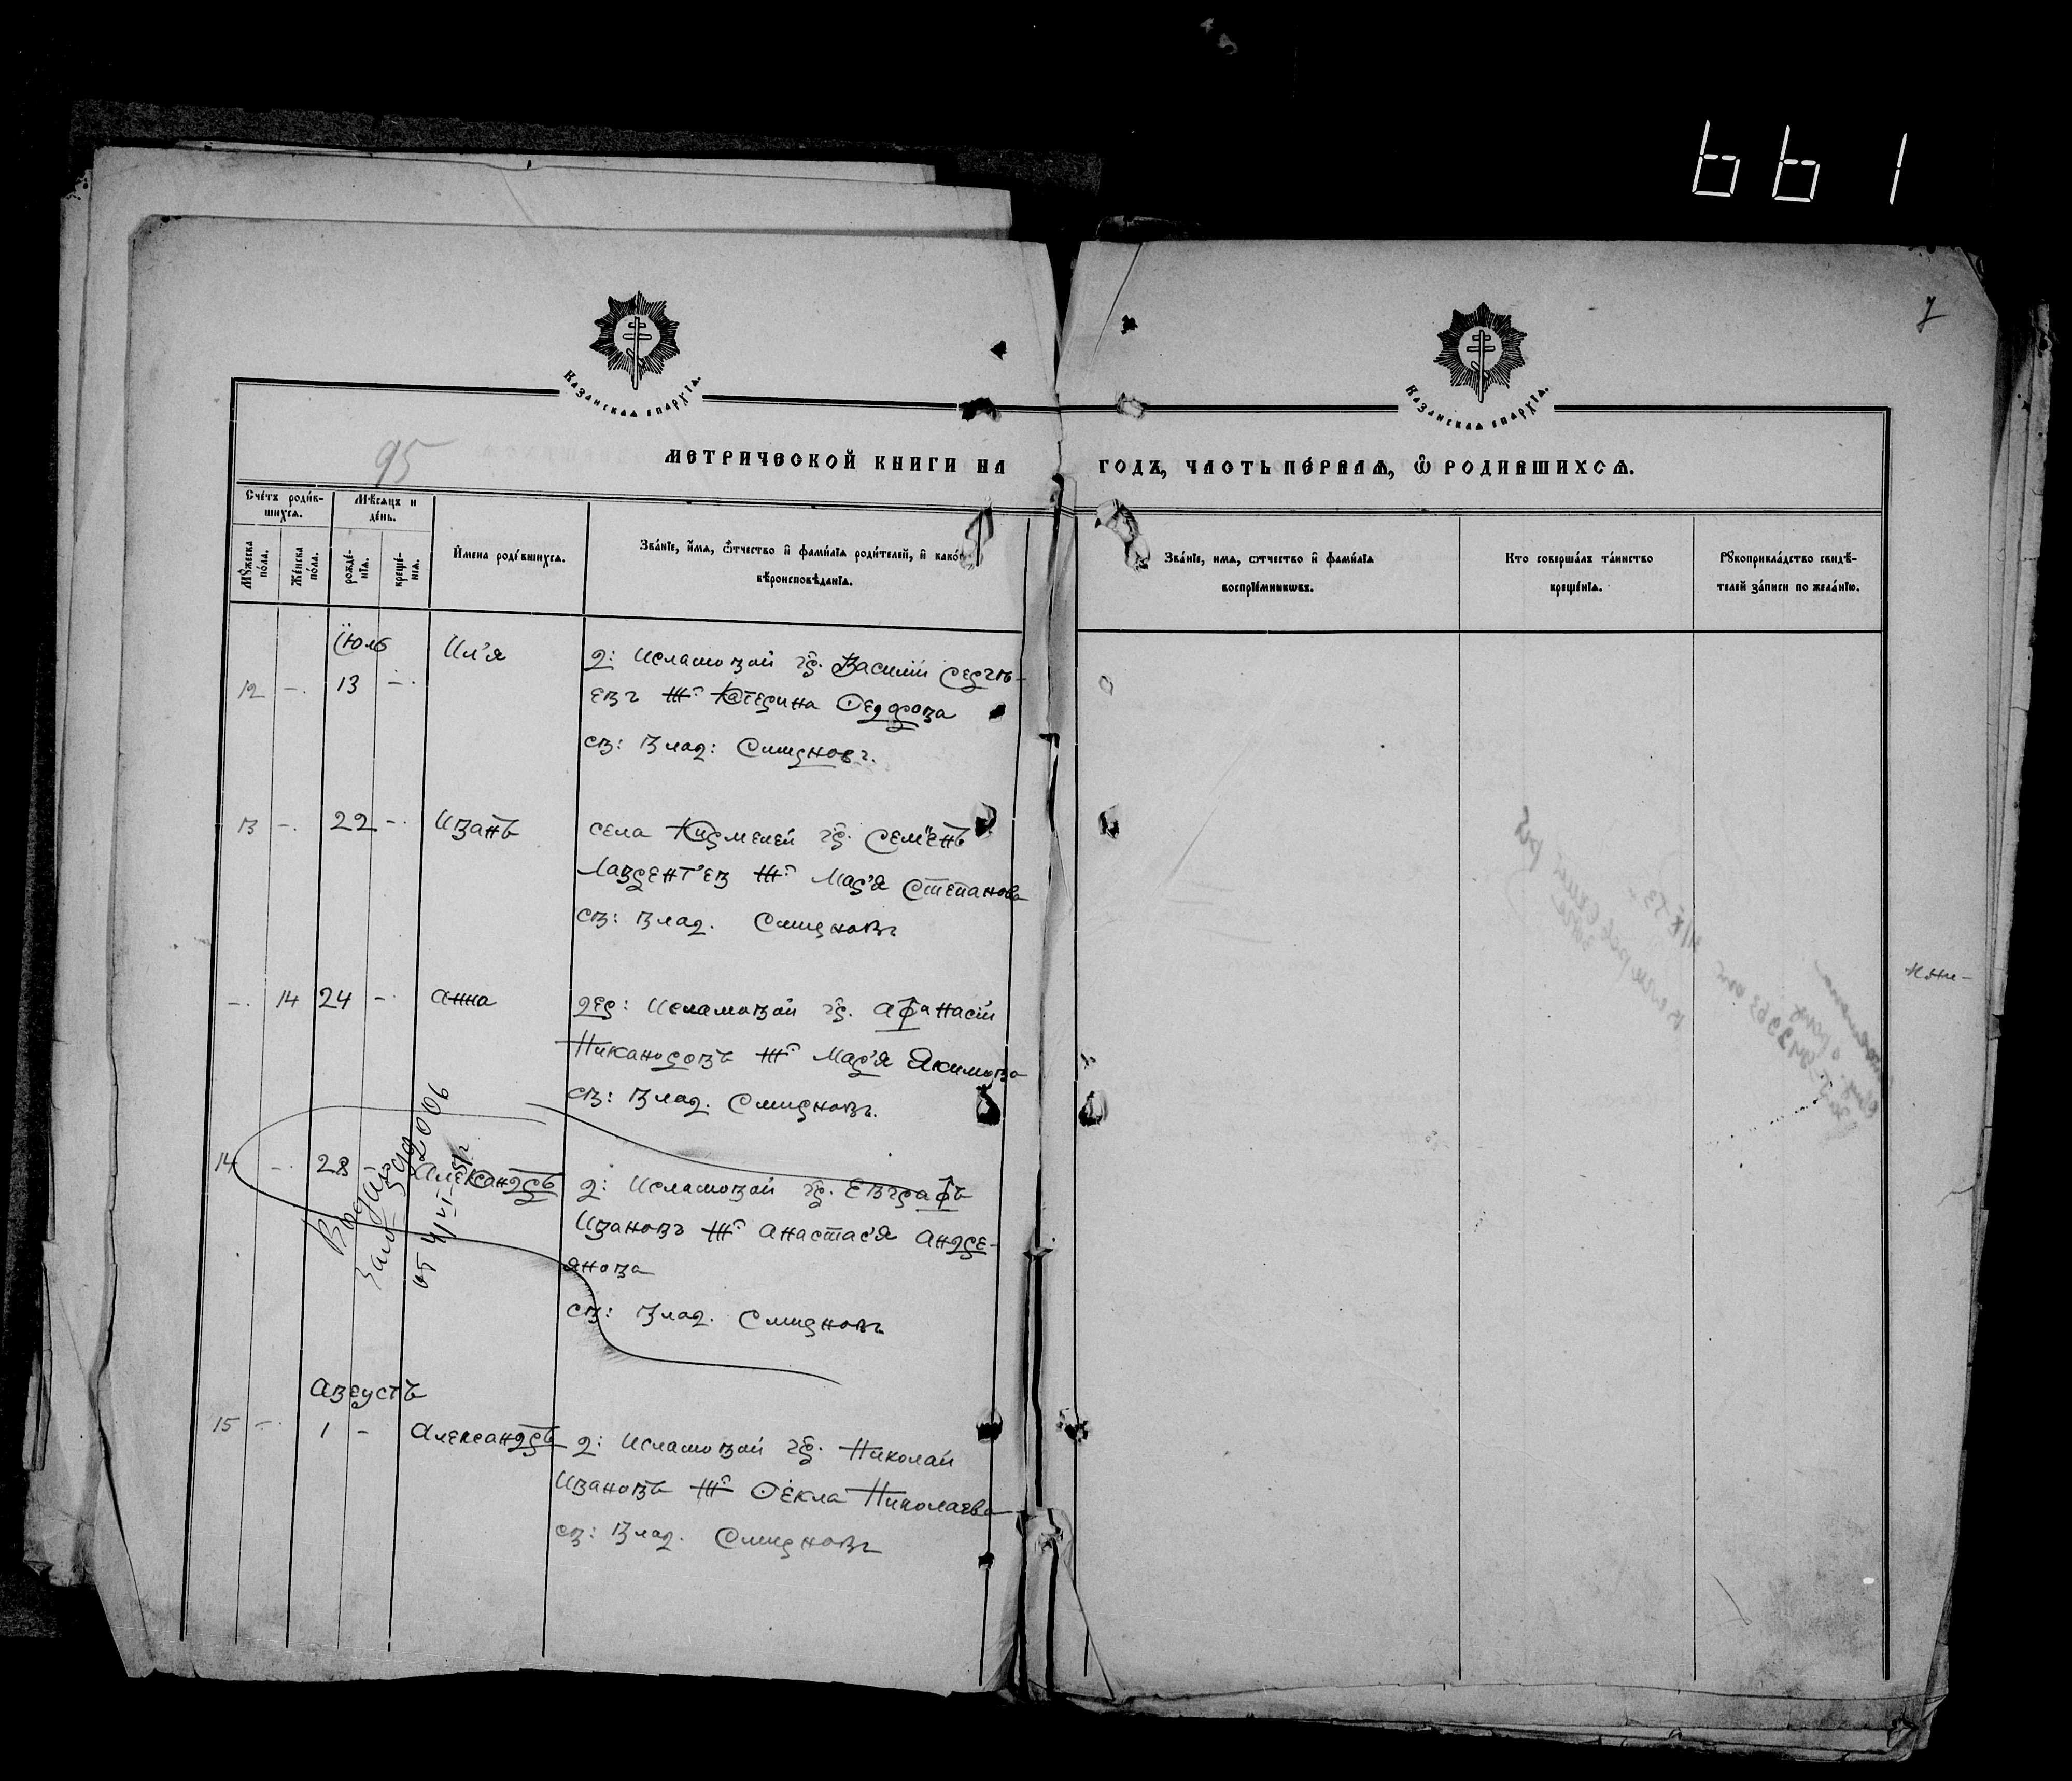 661
7
Казанская епархїѧ.
Казанская епархїѧ.
95
МЕТРИЧЕСКОЙ КНИГИ НА ГОДЪ, ЧАСТЬ ПЕРВАѦ, Ѿ РОДИВШИХСѦ.
Сче́тъ роди́в-
шихсѧ.
Мѣ́сѧцъ и
де́нь.
Мꙋ́жеска
по́ла.
Же́нска
по́ла.
рожде́-
нїѧ.
креще́-
нїѧ.
И҆́мена роди́вшихсѧ.
Зва́нїе, и҆́мѧ, ѻ҆́тчество и҆ фами́лїѧ роди́телей, и҆ како́гѡ
вѣроисповѣ́данїѧ.
Зва́нїе, имѧ, ѻтчество и҆ фами́лїѧ
воспрїе́мникѡвъ.
Кто соверша́лъ та́инство
креще́нїѧ.
Рꙋкоприкла́дство свидѣ́-
телей за́писи по жела́нїю.
Їюль
12 -. 13 -. Ил'я д: Исламовой гр. Василій Сергѣ-
евъ Ж. Катерина Ѳедорова
св: Влад: Смирновъ.
13 -. 22 -. Иванъ села Кармелей гр. Семёнъ
Лаврент'ев Ж. Мар'я Степанова
св: Влад. Смирновъ
-. 14 24 -. Анна дер: Исламовой гр. Афанасій
Никаноровъ Ж. Мар'я Якимова
св: Влад. Смирновъ.
14 -. 28 - Александръ д: Исламовой гр. Евграфъ
Ивановъ Ж. Анастас'я Андре-
янова
св: Влад. Смирновъ
Августъ
15 -. 1 - Александръ д: Исламовой гр. Николай
Ивановъ Ж. Ѳёкла Николаева
св: Влад. Смирновъ